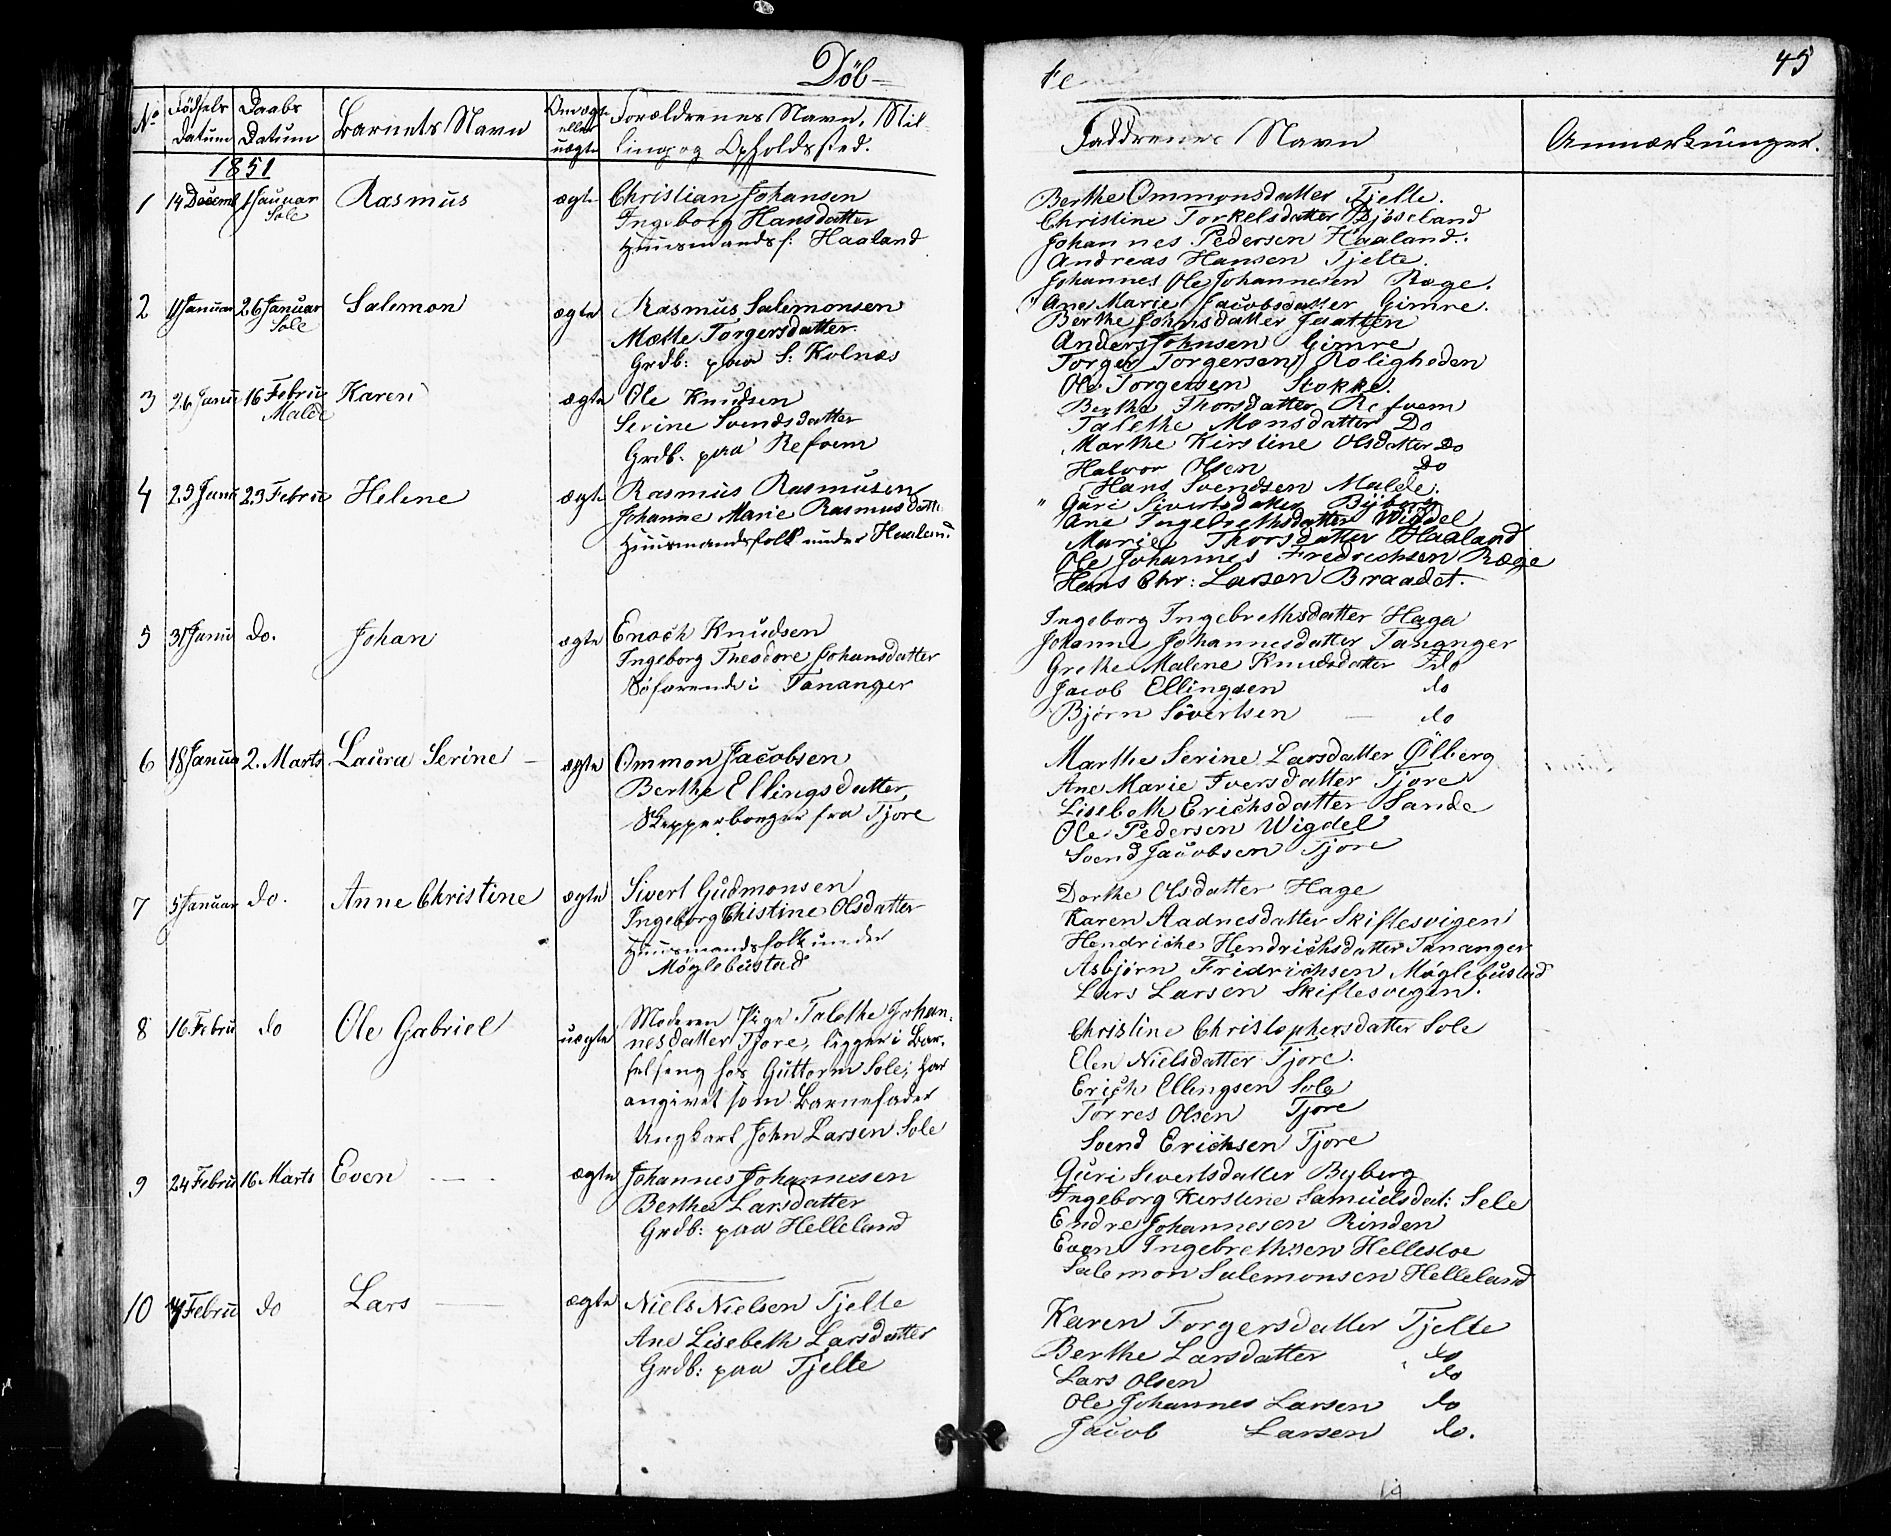 Døb-
No
Fødsels Datum
Daabs Datum
Barnets Navn
Om ægte eller uægte
Forældrenes Navn, Stilling og Opholdssted.
1851
1 14 Decemb 1 Januar Sole Rasmus ægte Christian Johansen
Ingeborg Hansdatter
Huusmandsf: Haaland
2 11 Januar 26 Januar Sole Salemon ægte Rasmus Salemonsen
Mætte Torgersdatter
Grdb: paa S: Kolnæs
3 26 Janu 16 Febru Malde Karen ægte Ole Knudsen
Serine Svendsdatter
Grdb: paa Refvem
4 29 Janu 23 Febru Helene ægte Rasmus Rasmusen
Johanne Marie Rasmusdatt
Huusmandsfolk under Haaland
5 31 Janu do. Johan ægte Enoch Knudsen
Ingeborg Theodore Johansdatter
Søfarende i Tananger
6 18 Janua 2. Marts Laura Serine - ægte Ommon Jacobsen
Berthe Ellingsdatter
Skepperborger fra Tjore
7 5 Januar do. Anne Christine ægte Sivert Gudmonsen
Ingeborg Chistine Olsdatter
Huusmandsfolk under
Møglebustad
8 16 Febru do Ole Gabriel uægte Moderen Pige Talethe Johan-
nesdatter Tjore, ligger i Bar-
selseng hos Guttorm Sole; har
angivet som Barnefader
Ungkarl John Larsen Sole
9 24 Febru 16 Marts Even ægte Johannes Johannesen
Berthe Larsdatter
Grdb: paa Helleland
10 Febru do Lars ægte Niels Nielsen Tjelte
Ane Lisebeth Larsdatter
Grdb: paa Tjelte
te
45
Faddrenes Navn
Anmærkninger.
Berthe Ommonsdatter Tjelte.
Christine Torkelsdatter Bjøseland
Johannes Pedersen Haaland.
Andreas Hansen Tjelte.
Johannes Ole Johannesen Ræge.
" Ane Marie Jacobsdatter Gimre.
Berthe Johnsdatter Jaatten
Anders Johnsen Gimre
Torger Torgersen Roligheden
Ole Torgersen Stokke.
Berthe Thorsdatter Refvem
Talethe Monsdatter Do
Marthe Kirstine Olsdatter do
Halvor Olsen do
Hans Svendsen Malde.
" Guri Sivertsdatter Byberg
Ane Ingebrethsdatter Wigdel
Marie Thorsdatter Haaland
Ole Johannes Fredrichsen Ræge
Hans Chr: Larsen Braadet.
Ingeborg Ingebrethsdatter Haga
Johanne Johannesdatter Tananger
Grethe Malene Knudsdatter do
Jacob Ellingsen do
Bjørn Sivertsen - do
Marthe Serine Larsdatter Ølberg
Ane Marie Iversdatter Tjore
Lisebeth Erichsdatter Sande
Ole Pedersen Wigdel
Svend Jacobsen Tjore
Dorthe Olsdatter Hage
Karen Aadnesdatter Skiftesvigen
Hendriche Hendrichsdatter Tananger
Asbjørn Fridrichsen Møglebustad
Lars Larsen Skiftesvigen.
Christine Christophersdatter Sole
Elen Nielsdatter Tjore.
Erich Ellingsen Sole
Torres Olsen Tjore
Svend Erichsen Tjore
Guri Sivertsdatter Byberg
Ingeborg Kirstine Samuelsdat: Sele
Endre Johannesen Rinden
Even Ingebrethsen Hellestoe
Salemon Salemonsen Helleland
Karen Torgersdatter Tjelte
Berthe Larsdatter do
Lars Olsen do
Ole Johannes Larsen do
Jacob Larsen do.